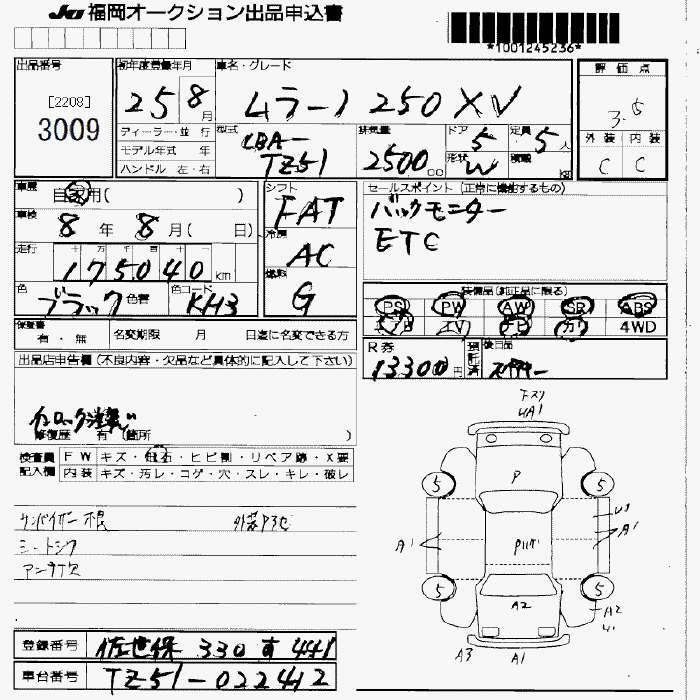 JU 福岡オークション出品申込書
*1001245236*
出品番号
[2208]
3009
初年度登録年月
25 8月
車名・グレード
ムラーノ 250XV
評価点
3.5
外装 内装
C C
ディーラー・並行
モデル年式 年
ハンドル 左・右
型式
CBA-
TZ51
排気量
2500cc
ドア
5
形状
W
定員
5人
積載
kg
車歴
自家用( )
車検
8年 8月( 日)
走行
十万千百十
175040km
色
ブラック
色替
色コード
KH3
シフト
FAT
冷房
AC
燃料
G
セールスポイント(正常に機能するもの)
バックモニター
ETC
装備品(純正品に限る)
PS PW AW SR ABS
エアB TV ナビ カワ 4WD
保証書
有・無
名変期限 月 日迄に名変できる方
R券
13300円
預託済
後日品
スペアキー
出品店申告欄(不良内容・欠品など具体的に記入して下さい)
修復歴 有(箇所 )
検査員
記入欄
FW キズ・飛石・ヒビ割・リペア跡・X要
内装 キズ・汚レ・コゲ・穴・スレ・キレ・破レ
サンバイザー不良
シートシワ
アンテナ欠
下スリ
UA1
P
5
5
U1
A1
A1
5
5
A2
A2
A3
A1
登録番号
佐世保 330 す 441
車台番号
TZ51-022412